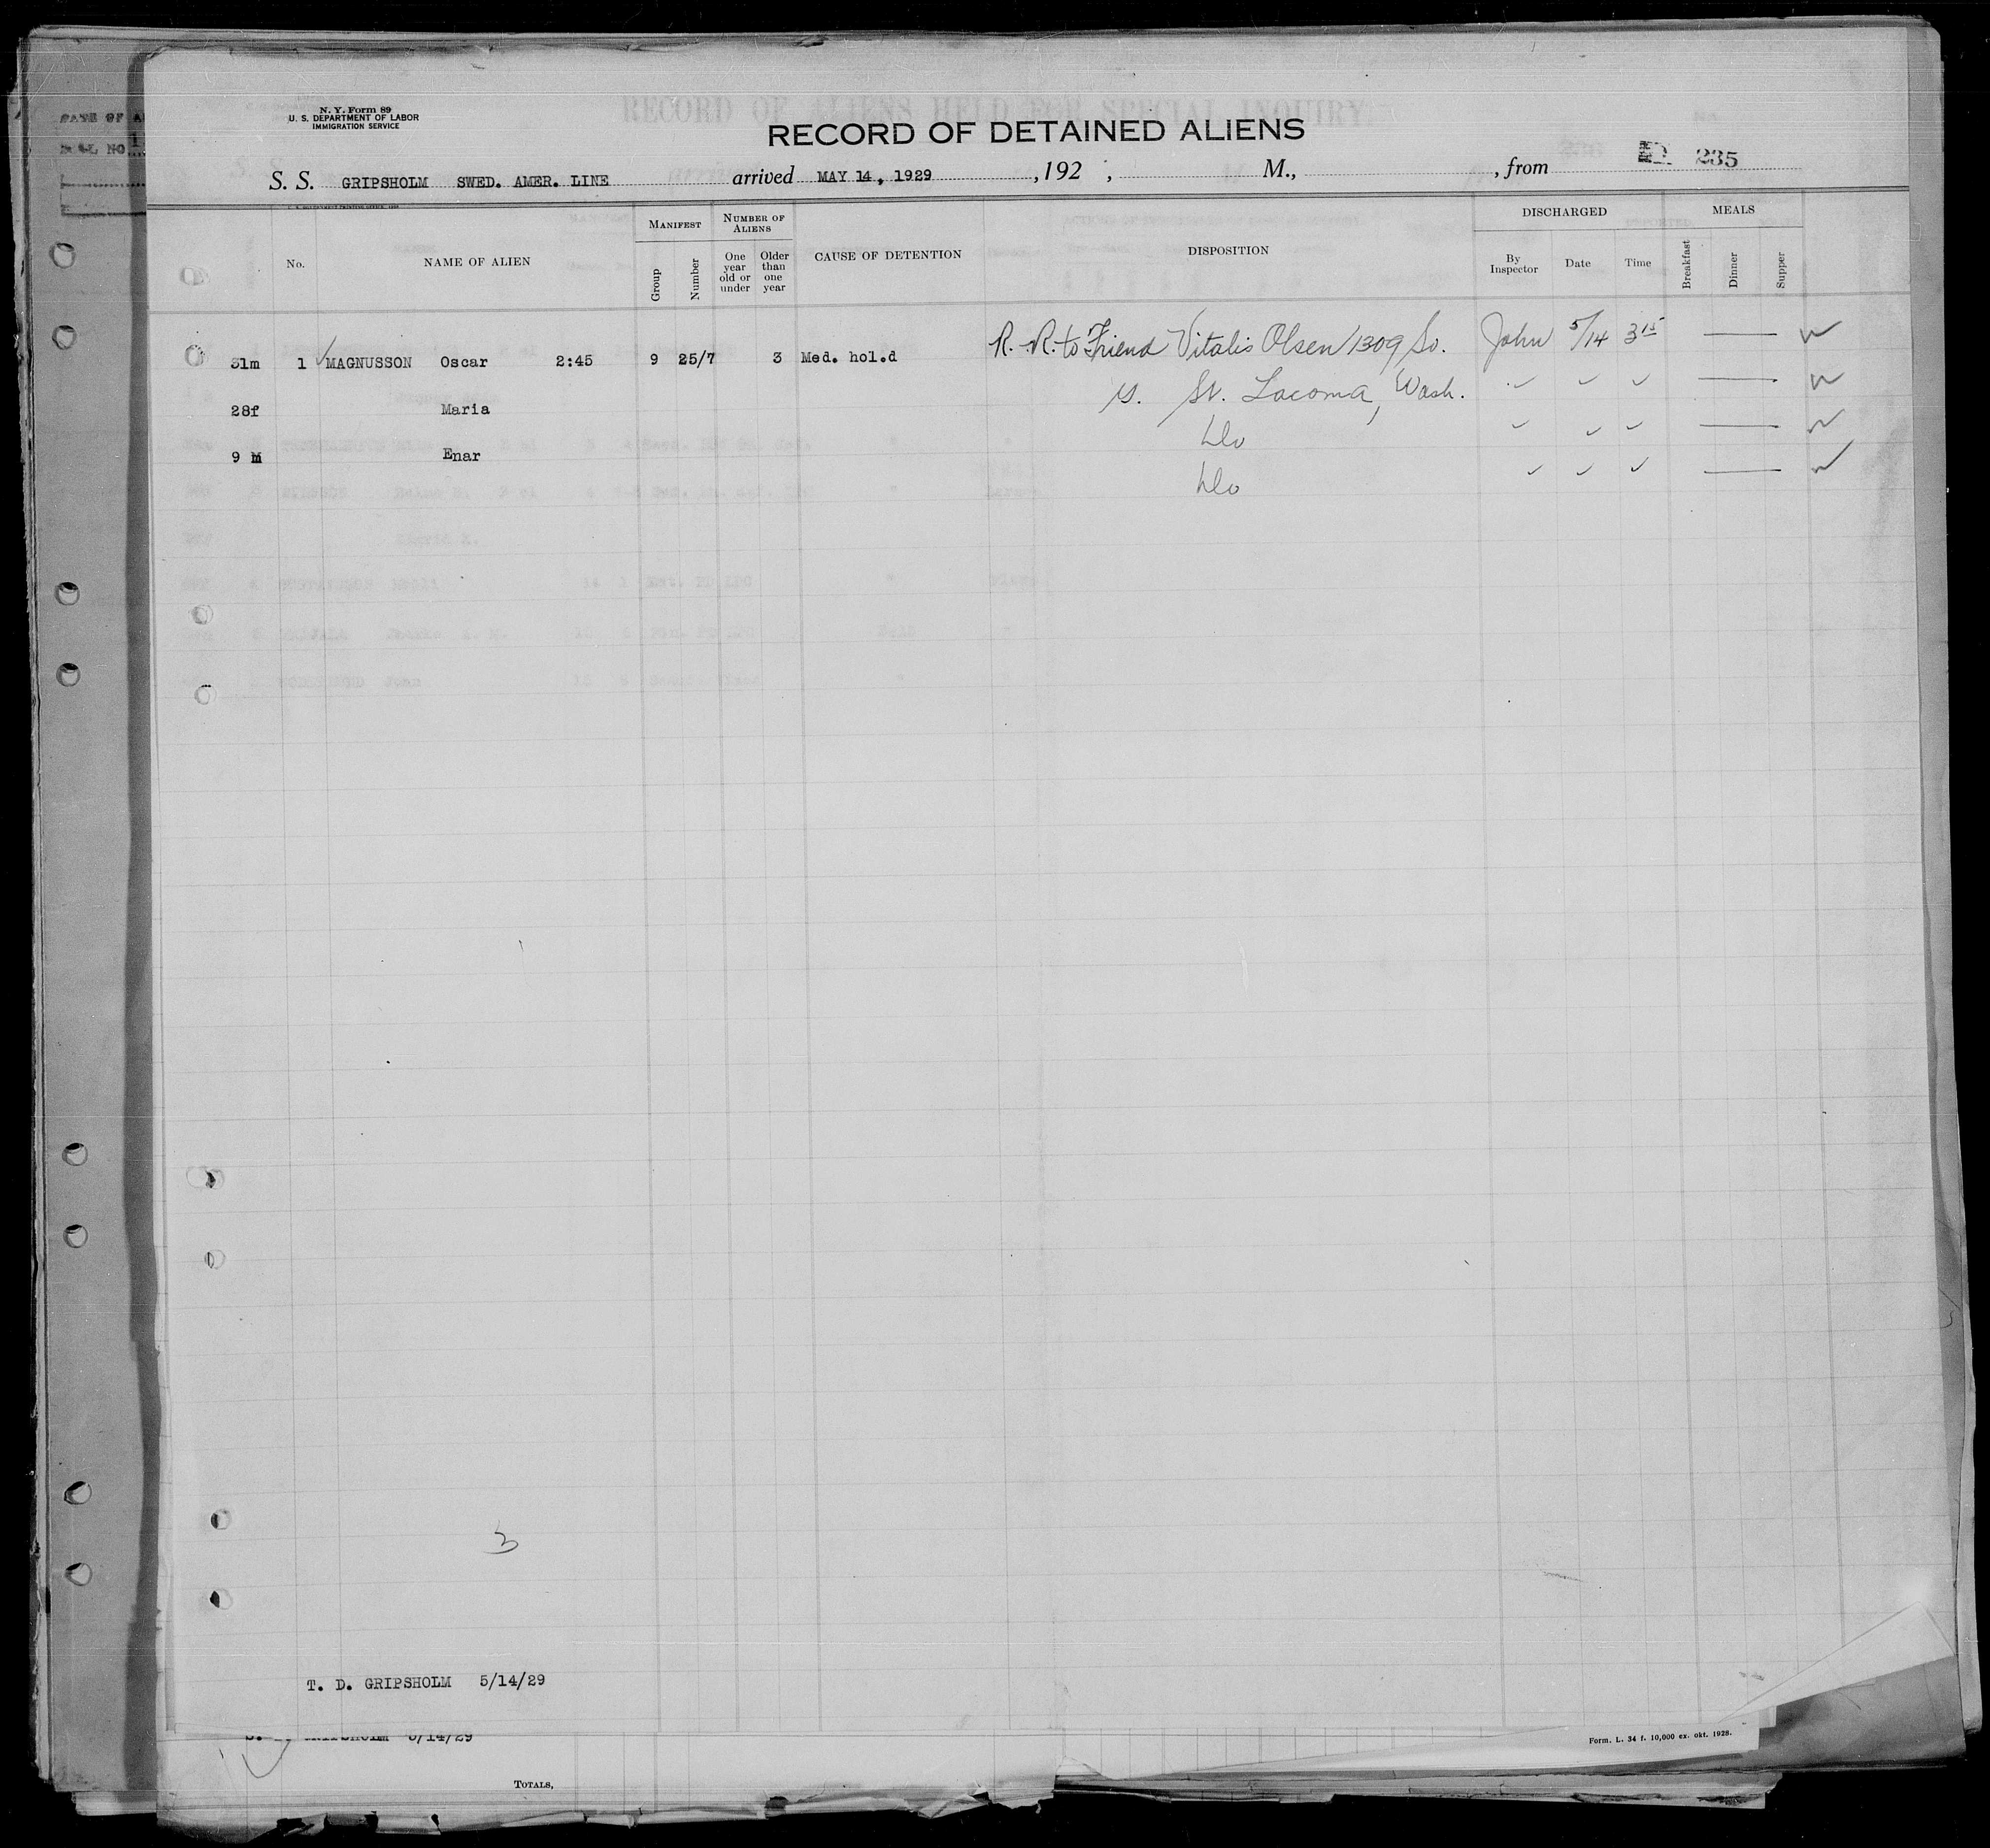 N. Y. Form 89
U. S. DEPARTMENT OF LABOR
IMMIGRATION SERVICE
RECORD OF ALIENS HELD FOR SPECIAL INQUIRY
RECORD OF DETAINED ALIENS
235
S. S. GRIPSHOLM SWED. AMER. LINE arrived MAY 14, 1929 , 192 , M., , from
No. NAME OF ALIEN MANIFEST Group Number NUMBER OF ALIENS One year old or under Older than one year CAUSE OF DETENTION DISPOSITION DISCHARGED By Inspector Date Time MEALS Breakfast Dinner Supper
31m 1 MAGNUSSON Oscar 2:45 9 25/7 3 Med. hol.d R. R. to Friend Vitalis Olsen 1309 So. John 5/14 3 15
28f Maria St. Tacoma, Wash.
9 M Enar Do
Do
3
T. D. GRIPSHOLM 5/14/29
GRIPSHOLM 5/14/29
Form. L. 34 f. 10,000 ex. okt. 1928.
TOTALS,